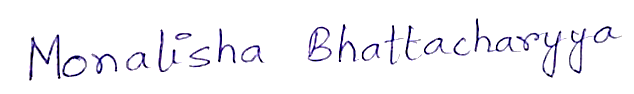 Monalisha Bhattacharyya